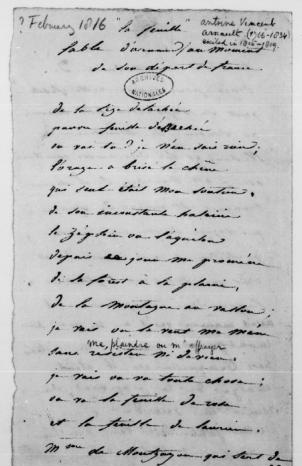 ? February 1816 "la feuille" antoine Vincent
arnault (1716-1834)
exiled in 1815-1819.
fable d'arnaud au moment
de son départ de france
ARCHIVES
NATIONALES
de la tige detachée
pauvre feuille
ou vas tu? je n'en sais rien;
l'orage a brisé le chêne
qui seul etait mon soutien
de son inconstante haleine
le zéphir ou l'aquilon
depuis ce jour me promene
de la foret a la plaine,
de la Montagne au vallon;
je vais ou le vent me mene
me plaindre ou m'effrayer
sans
je vais ou va toute chose;
ou va la feuille de rose
et la feuille de laurier.
Mme de qui sort de